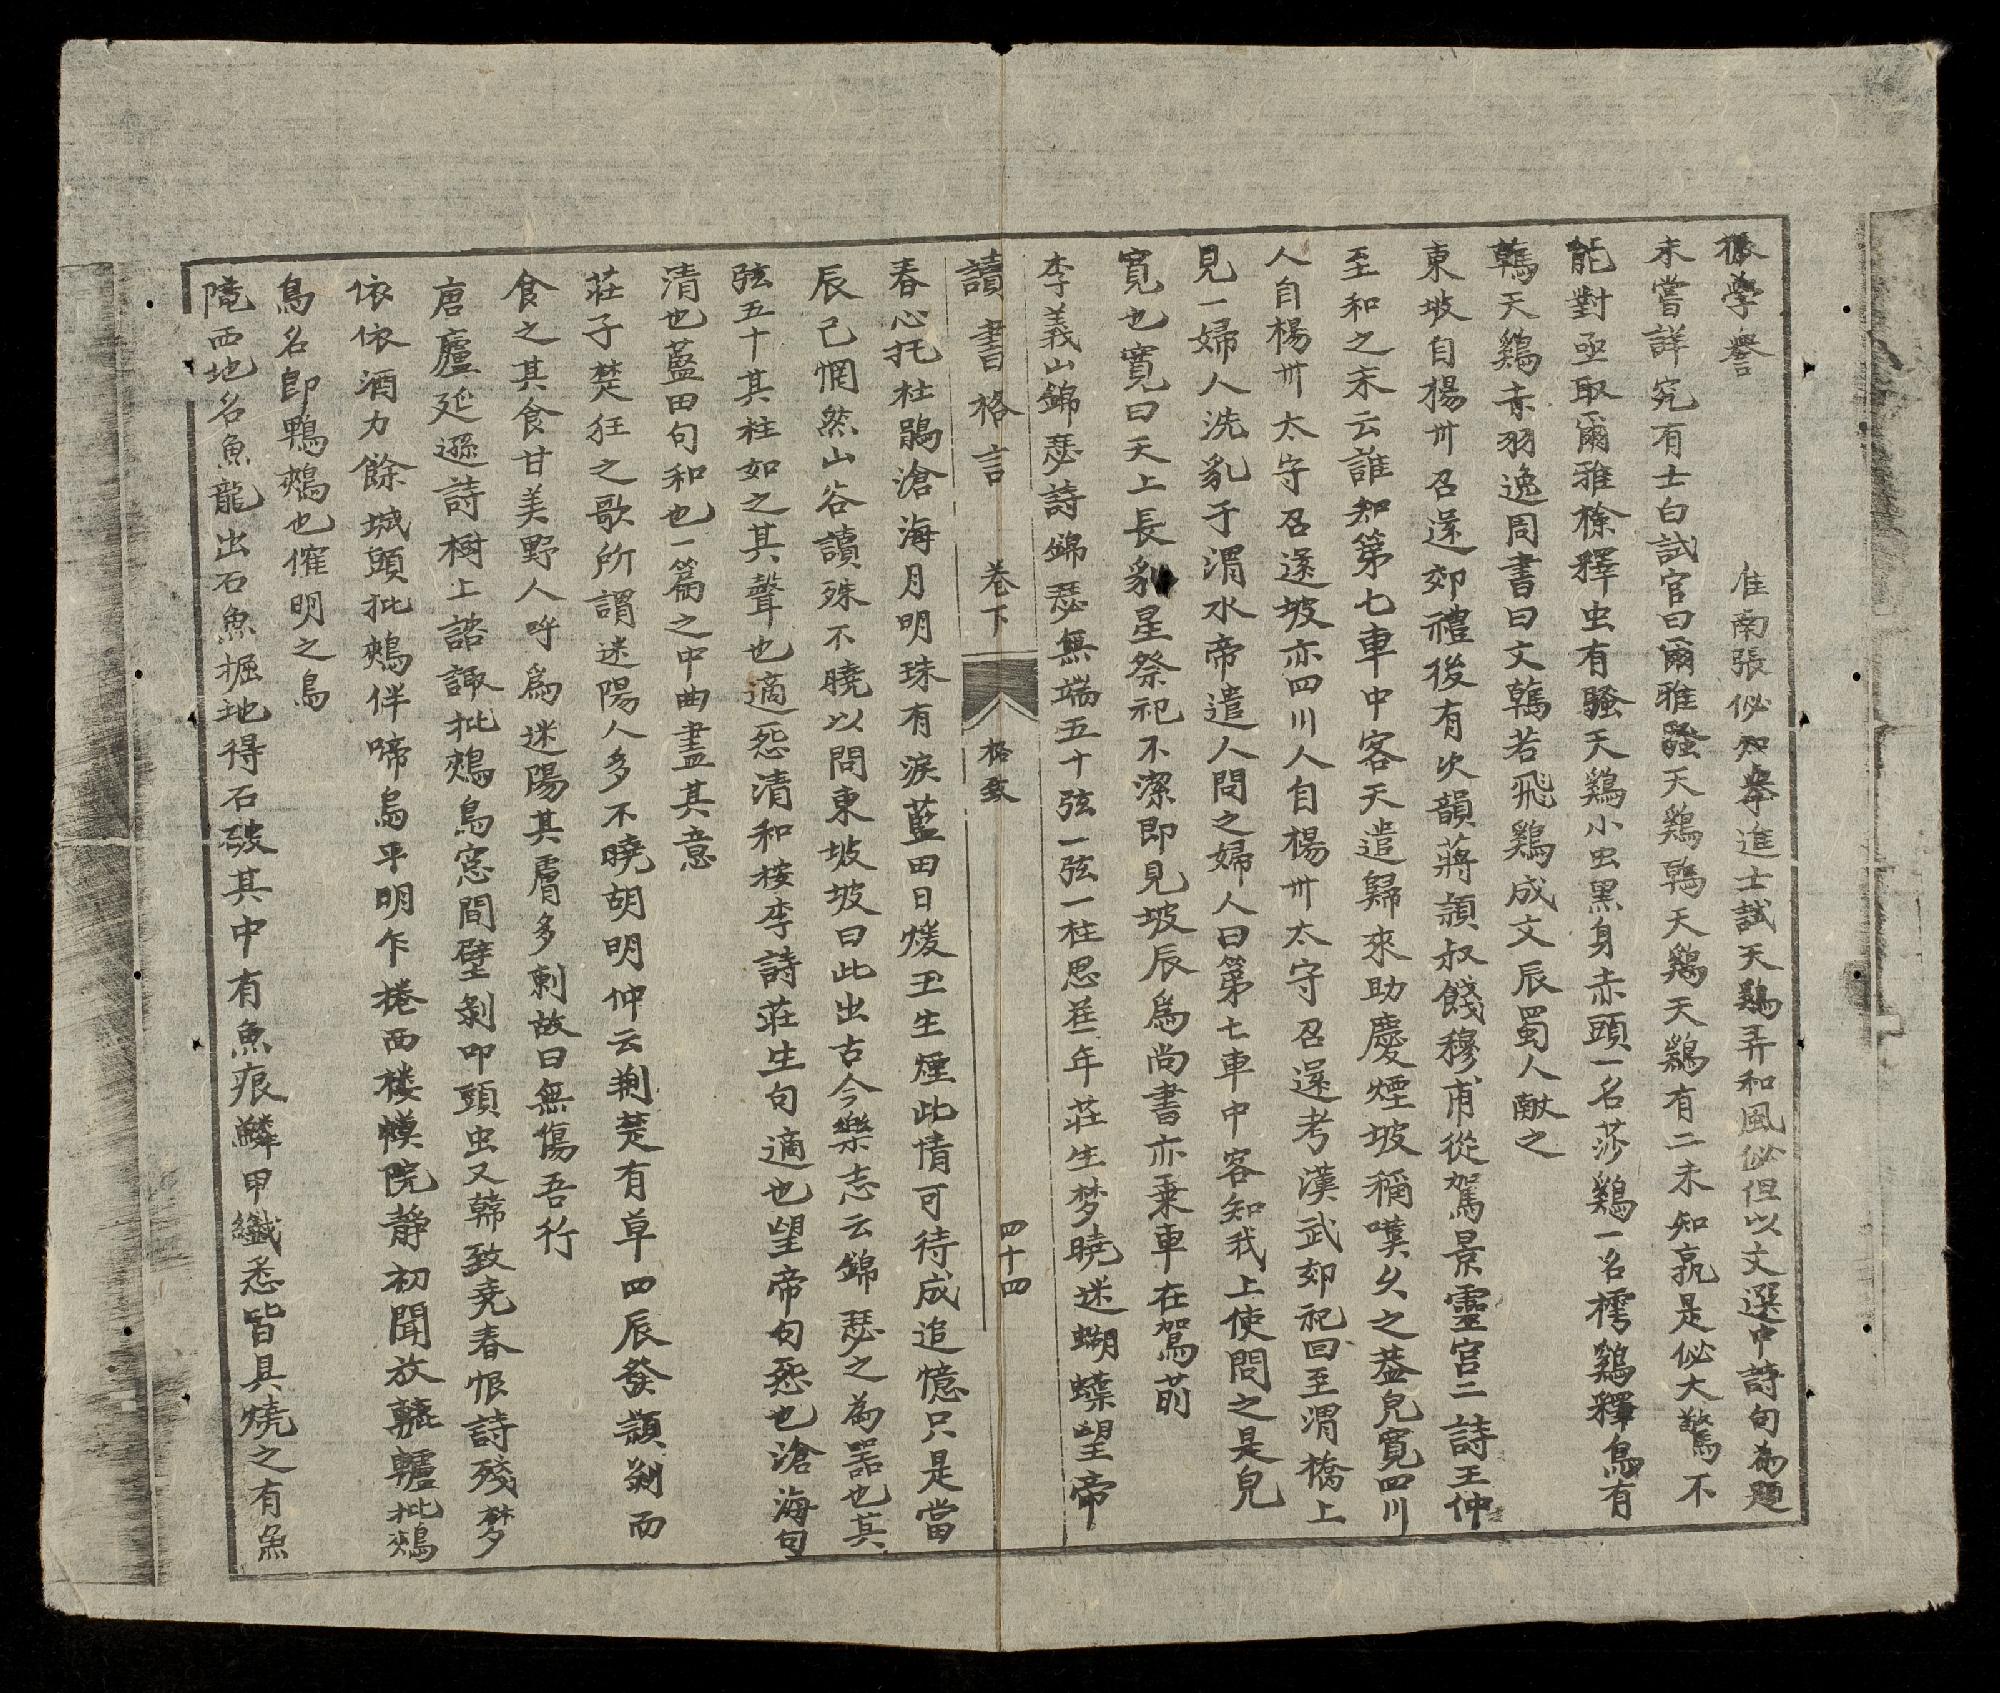 振學譽　淮南張佖知舉進士試天鷄弄和風佖但以文選中詩句為題
未嘗詳究有士白試官曰爾雅螒天鷄鶾天鷄天鷄有二未知孰是佖大驚不
能對亟取爾雅檢釋虫有螒天鷄小虫黑身赤頭一名莎鷄一名樗鷄釋鳥有
鶾天鷄赤羽逸周書曰文鶾若飛鷄成文辰蜀人献之
東坡自楊州召還郊禮後有次韻蔣頴叔餞穆甫從駕景靈宮二詩王仲
至和之末云誰知第七車中客天遣歸來助慶煙坡稱嘆久之盖皃寛四川
人自楊州太守召還坡亦四川人自楊州太守召還考漢武郊祀回至渭橋上
見一婦人洗乳于渭水帝遣人問之婦人曰第七車中客知我上使問之是皃
寛也寛曰天上長乳星祭祀不潔即見坡辰爲尚書亦乗車在駕前
李義山錦瑟詩錦瑟無端五十弦一弦一柱思華年莊生梦曉迷蝴蝶望帝
讀書格言　卷下　格致　四十四
春心托杜鵑滄海月明珠有淚藍田日煖玉生煙此情可待成追憶只是當
辰已惘然山谷讀殊不曉以問東坡坡曰此出古今樂志云錦瑟之為器也其
弦五十其柱如之其聲也適怨清和按李詩莊生句適也望帝句怨也滄海句
清也藍田句和也一篇之中曲盡其意
莊子楚狂之歌所謂迷陽人多不曉胡明仲云荆楚有草四辰發頴剥而
食之其食甘美野人呼爲迷陽其膚多刺故曰無傷吾行
唐盧延遜詩樹上諮諏批鵊鳥窓間壁剝叩頭虫又韓致堯春恨詩殘梦
依依酒力餘城頭批鵊伴啼烏平明乍捲西楼幙院靜初聞放轆轤批鵊
鳥名即鴨鵊也催明之鳥
隴西地名魚龍出石魚掘地得石破其中有魚痕鱗甲纖悉皆具燒之有魚